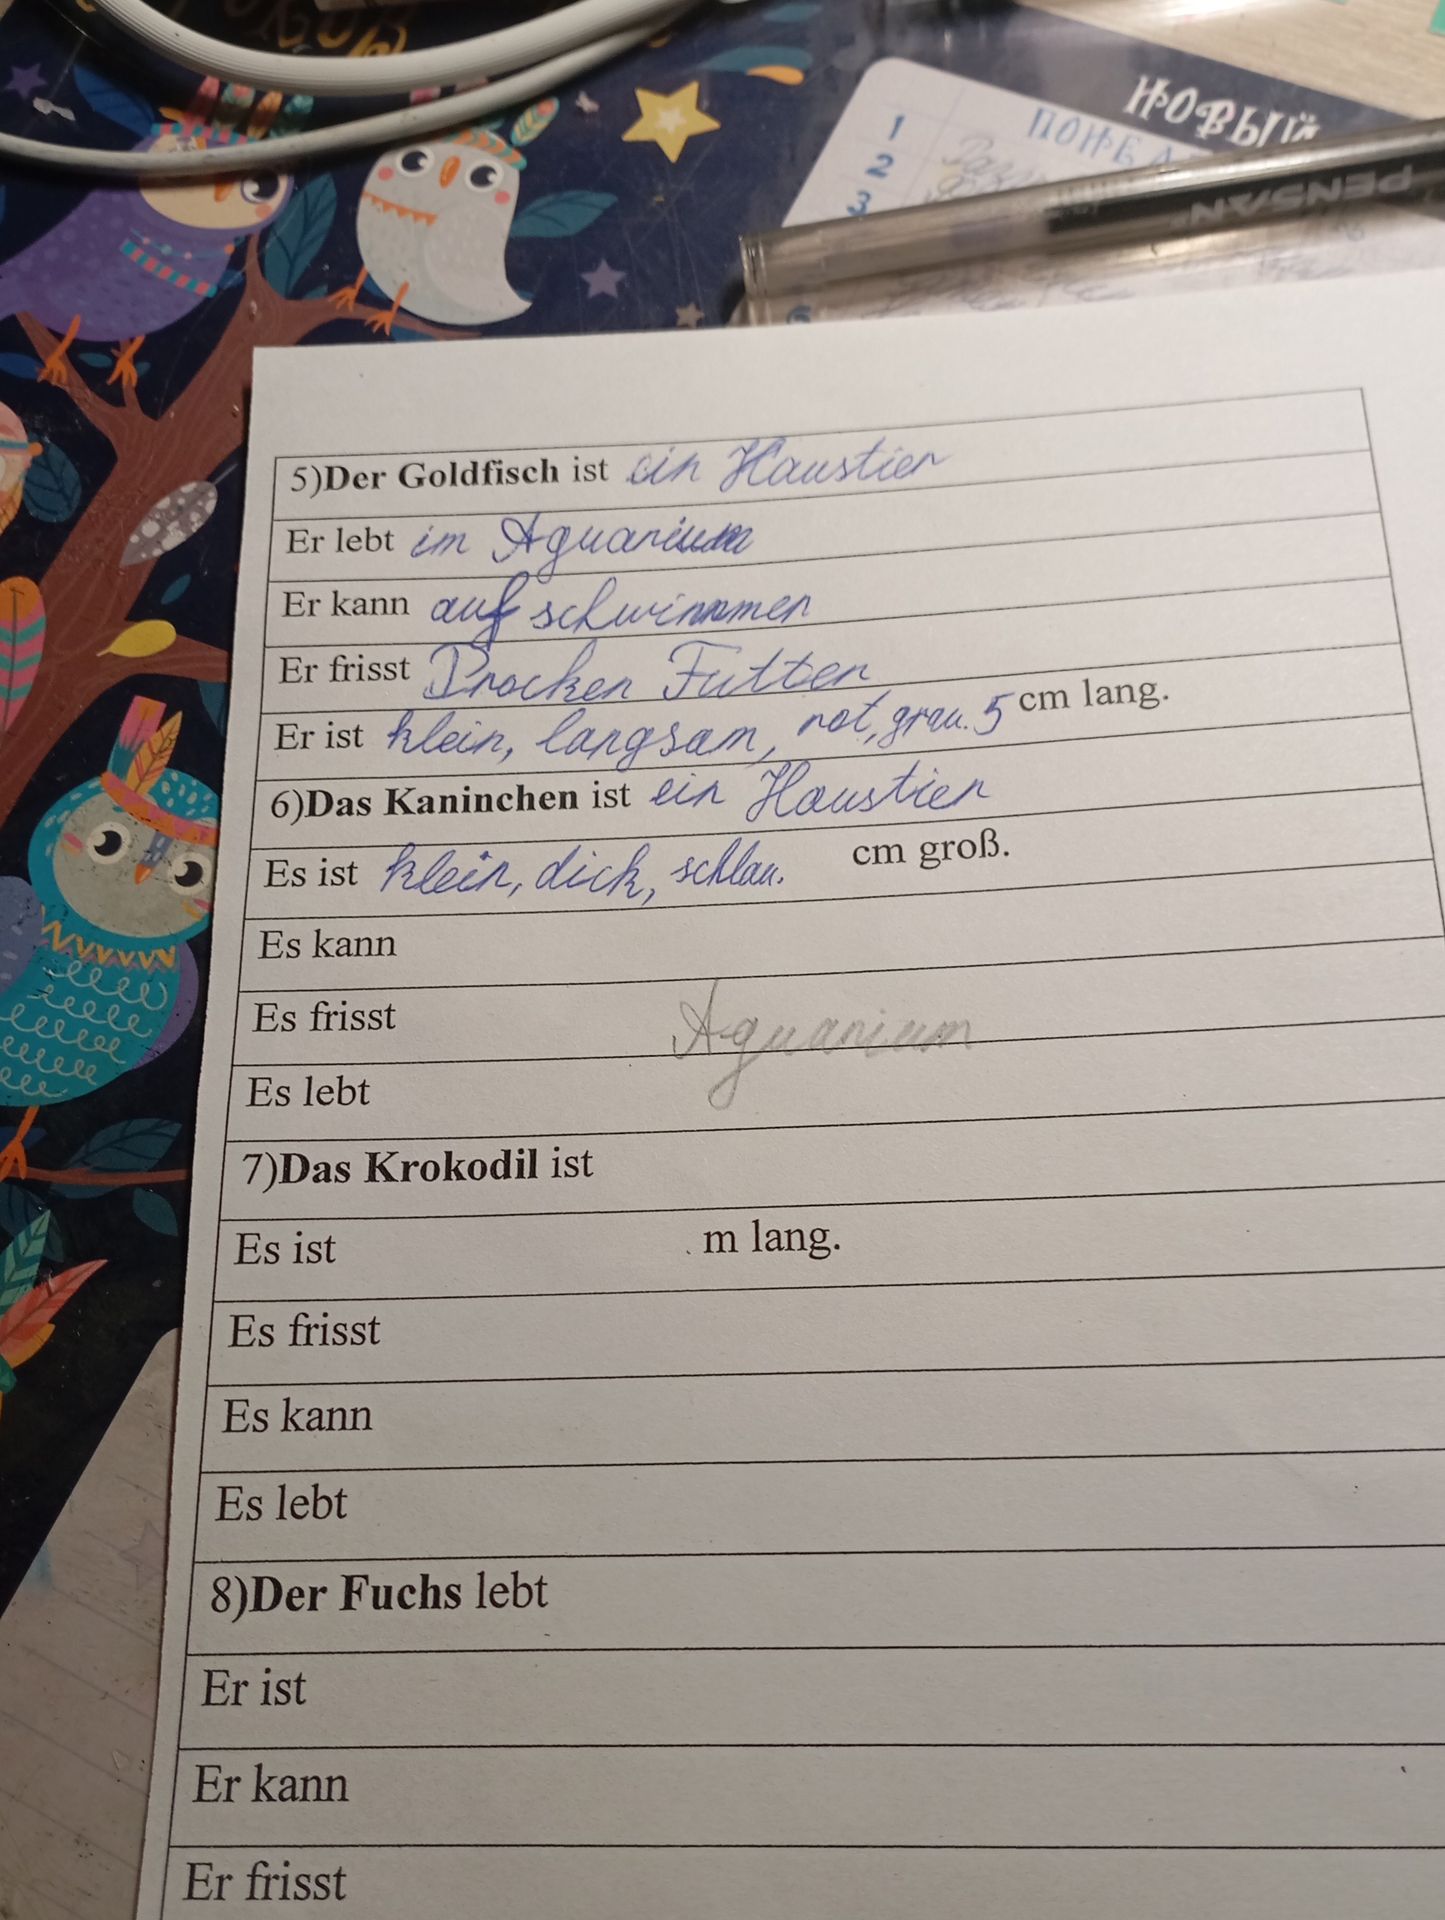 НОВЫЙ
1
ПОНЕД
2
3
PENSAN
5)Der Goldfisch ist ein Haustier
Er lebt im Aquarium
Er kann auf schwimmen
Er frisst Procken Futter
Er ist klein, langsam, rot, grau. 5 cm lang.
6)Das Kaninchen ist ein Haustier
Es ist klein, dick, schlau. cm groß.
Es kann
Es frisst
Aquarium
Es lebt
7)Das Krokodil ist
Es ist m lang.
Es frisst
Es kann
Es lebt
8)Der Fuchs lebt
Er ist
Er kann
Er frisst